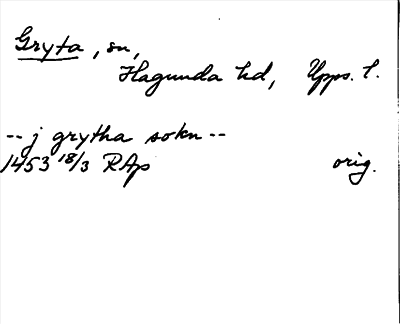 Gryta, sn,
Hagunda hd, Upps. l.
-- j grytha sokn --
1453 18/3 RAp orig.